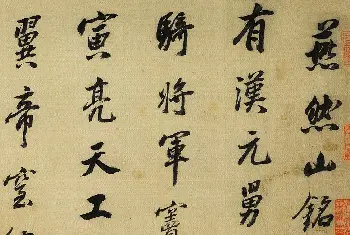 燕然山銘
有漢元舅
騎將軍竇
寅亮天工
翼帝室